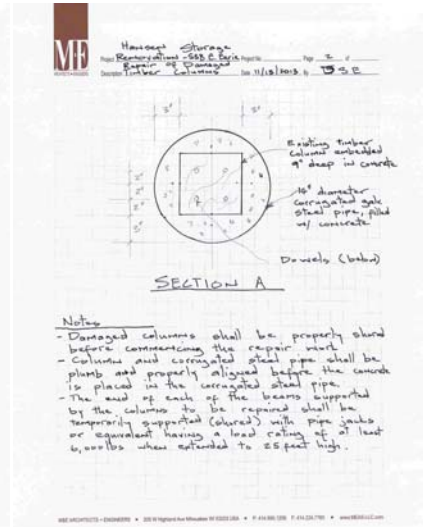 M&E
Hansen Storage
Project Renovations - 553 E. Erie Project No. Page 2 of
Repair of Damaged
Description Timber Columns Date 11/13/2013 By JSE
3" 3"
Existing timber
column embedded
9" deep in concrete
2"
2"
2"
diameter
corrugated galv.
steel pipe, filled
w/ concrete
Dowels (below)
SECTION A
Notes
- Damaged columns shall be properly shored
before commencing the repair work
- Column and corrugated steel pipe shall be
plumb and properly aligned before the concrete
is placed in the corrugated steel pipe.
- The end of each of the beams supported
by the columns to be repaired shall be
temporarily supported (shored) with pipe jacks
or equivalent having a load rating of at least
6,000 lbs when extended to 25 feet high.
ARCHITECTS + ENGINEERS